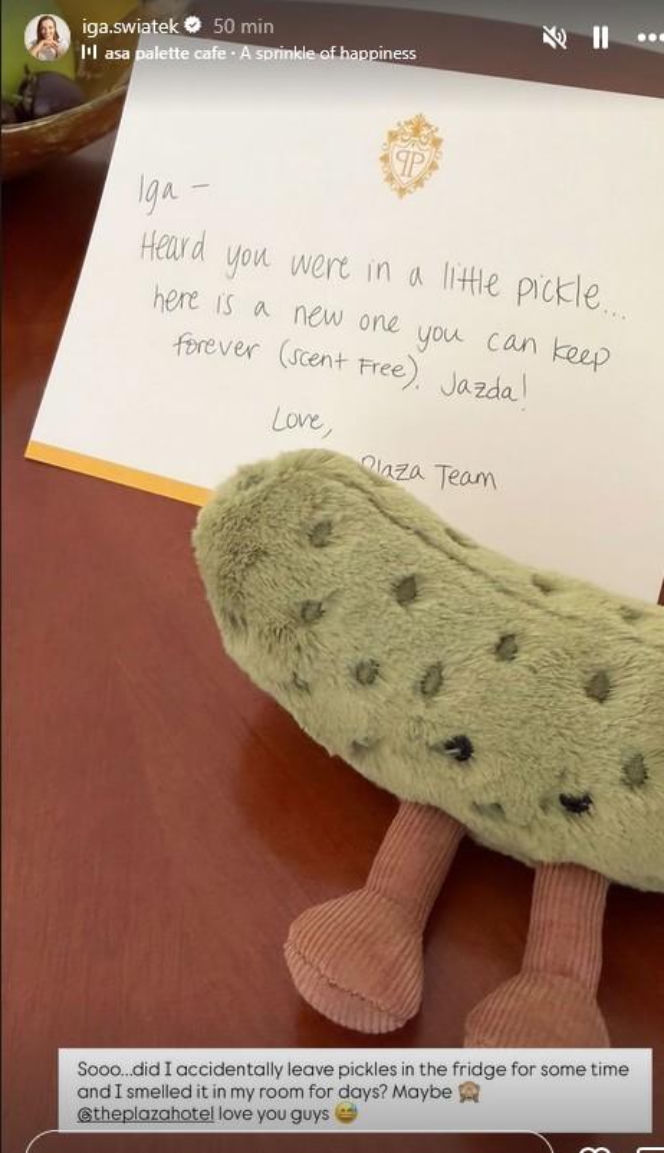 iga.swiatek 50 min
asa palette cafe · A sprinkle of happiness
PP
Iga –
Heard you were in a little pickle...
here is a new one you can keep
forever (scent Free). Jazda!
Love,
Plaza Team
Sooo...did I accidentally leave pickles in the fridge for some time
and I smelled it in my room for days? Maybe 🙈
@theplazahotel love you guys 😅